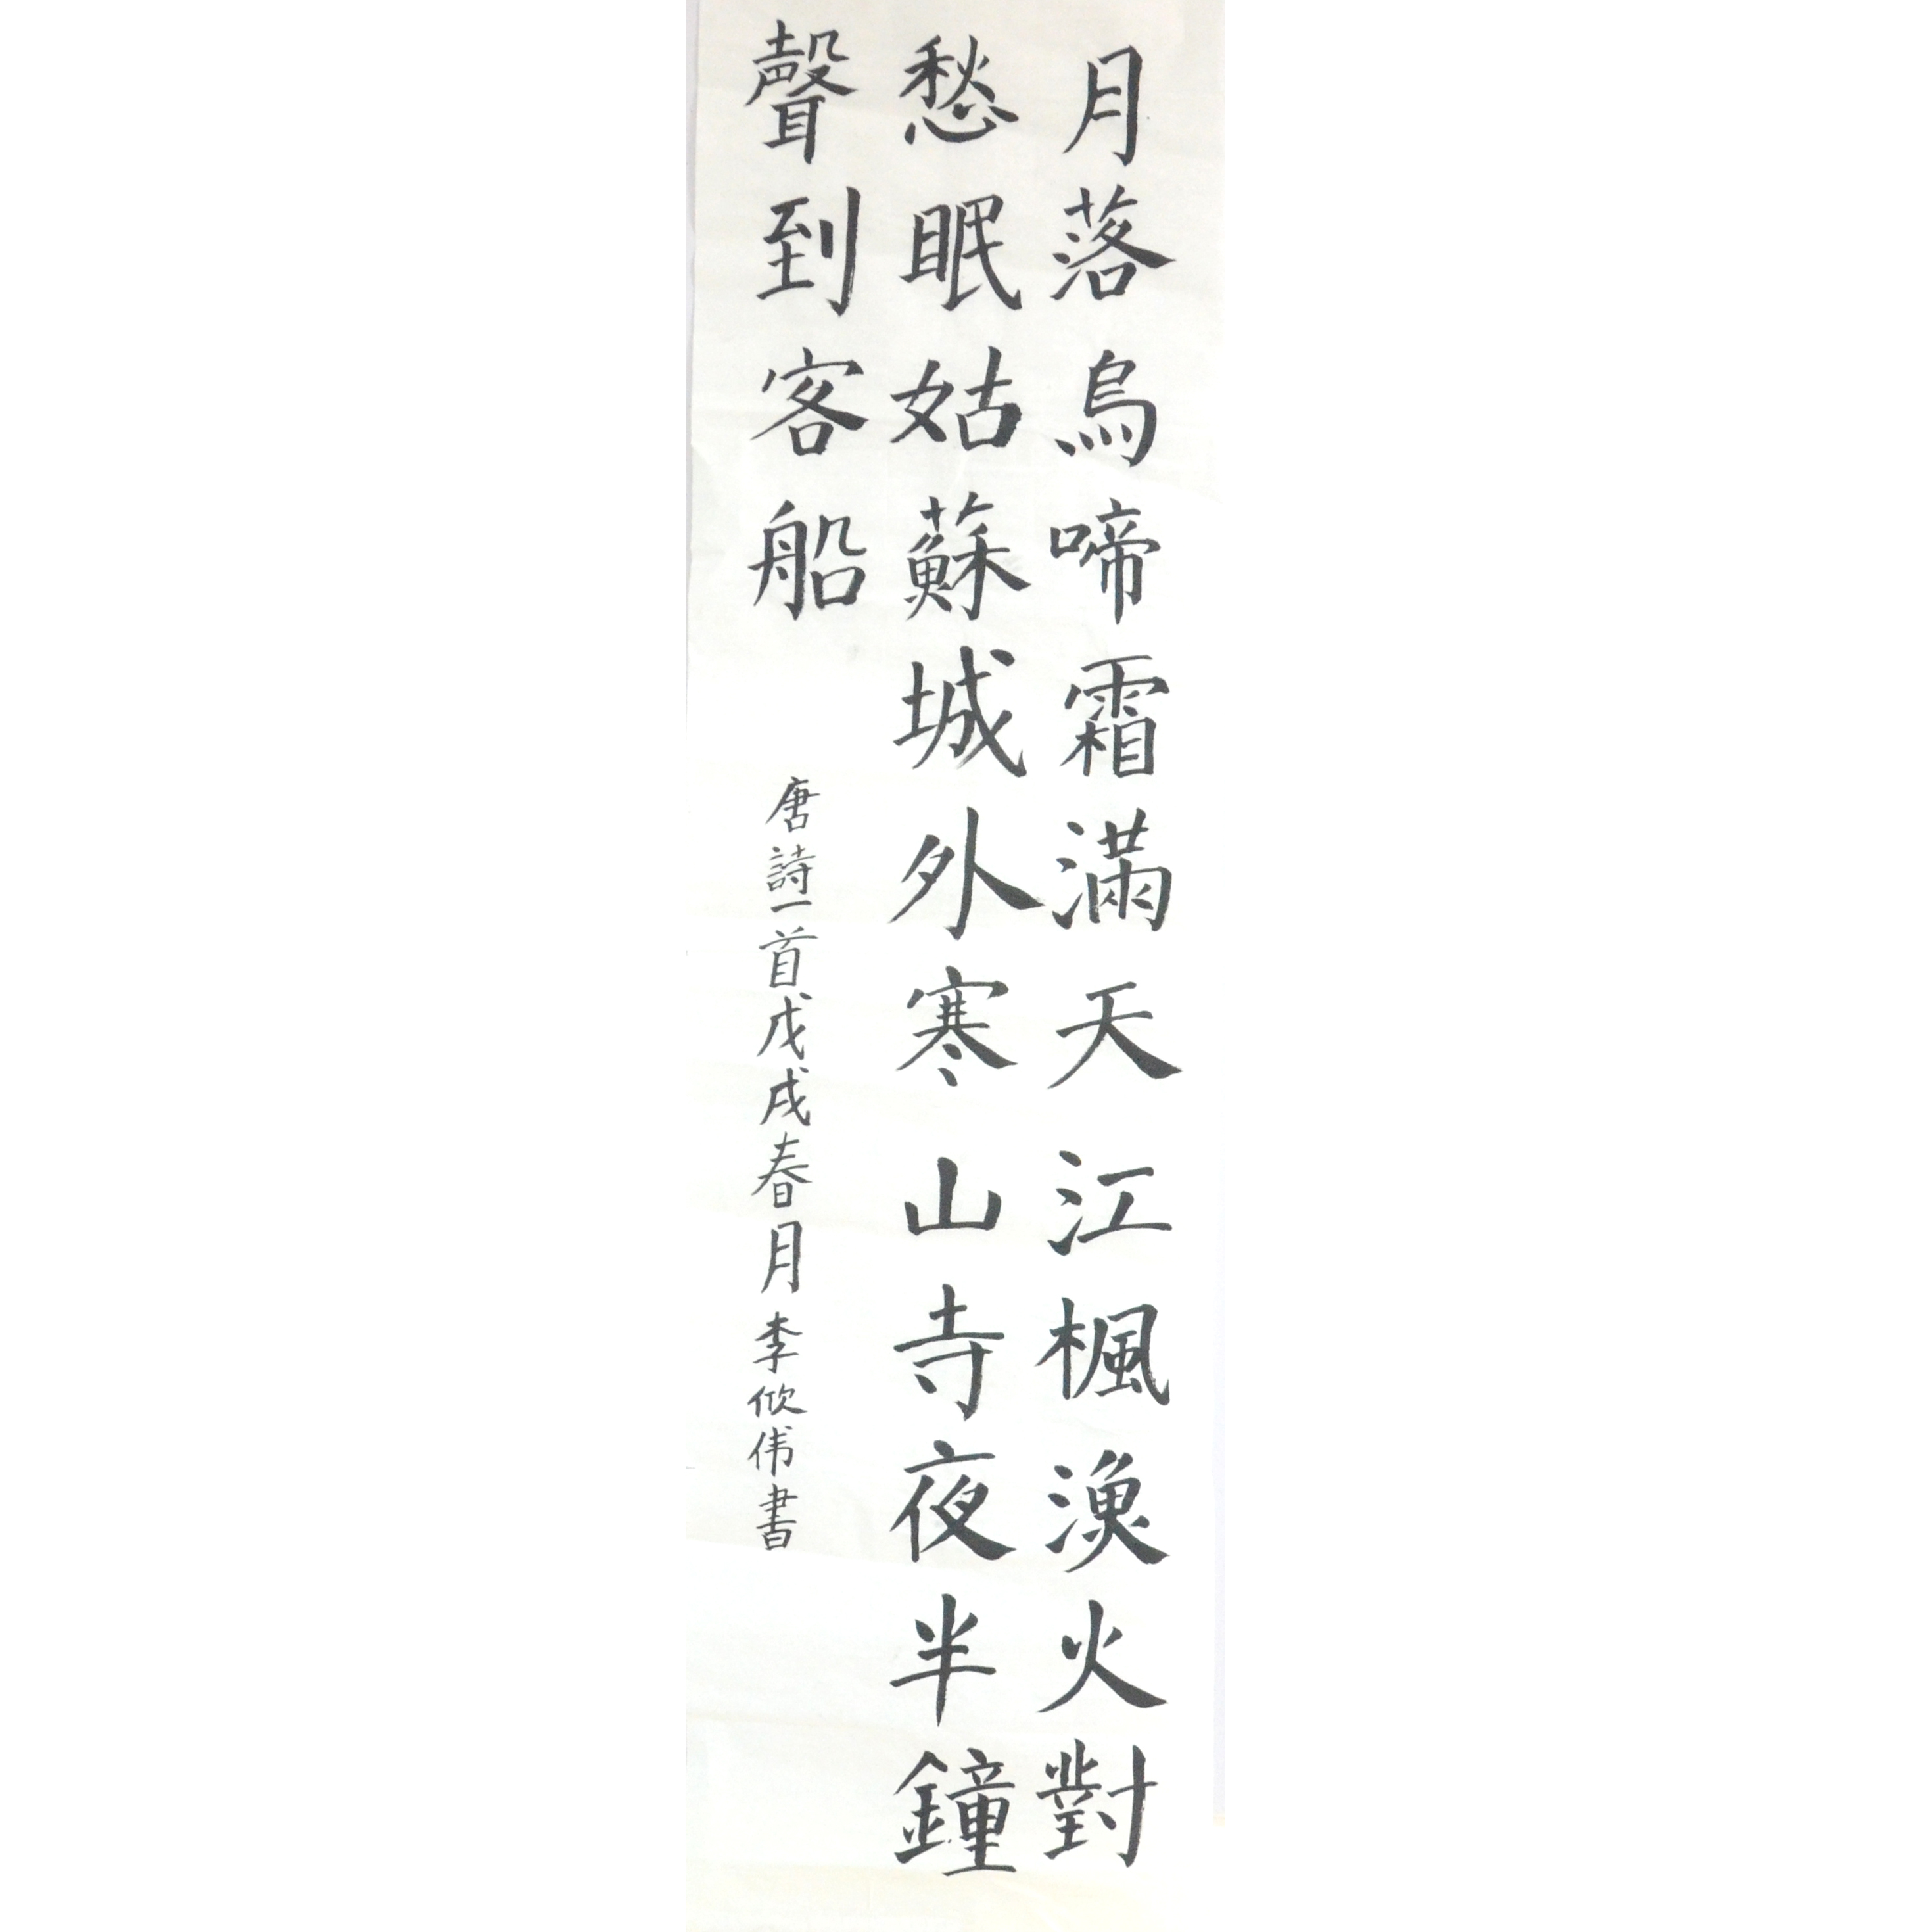 月落烏啼霜滿天江楓漁火對
愁眠姑蘇城外寒山寺夜半鐘
聲到客船
唐詩一首戊戌春月李俽伟書